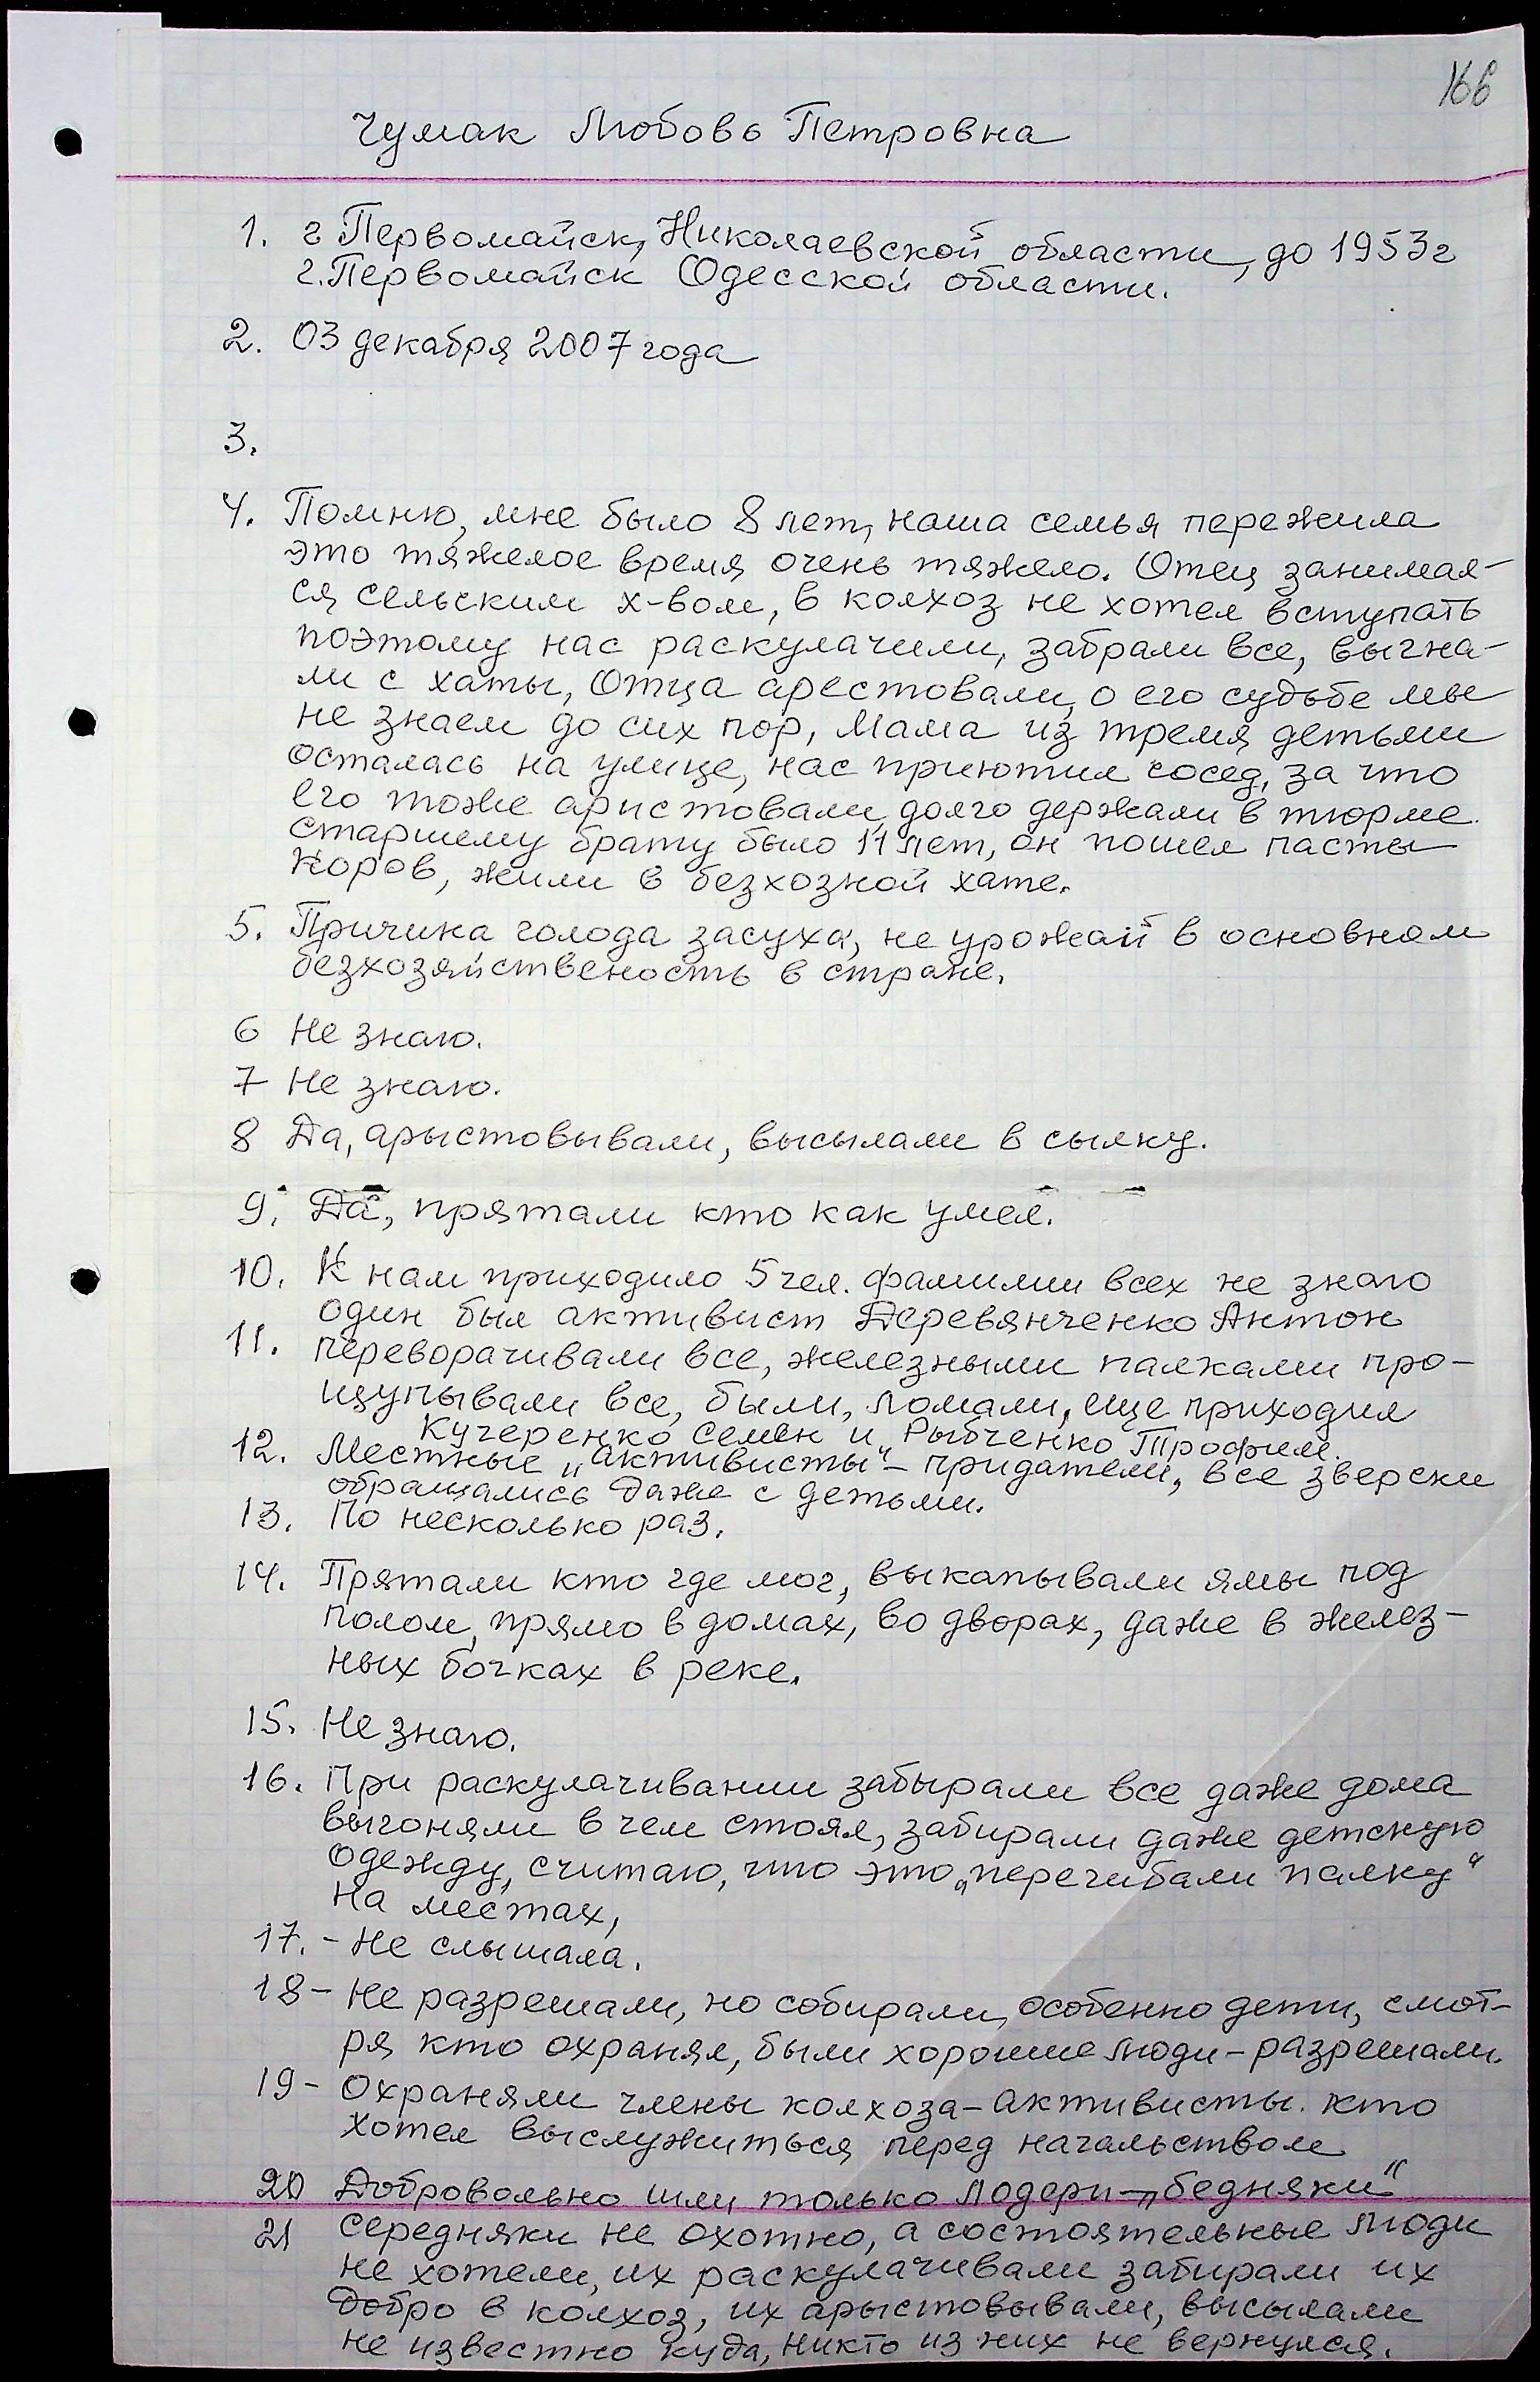 166
Чумак Любовь Петровна
1. г Первомайск, Николаевской области, до 1953г
г. Первомайск Одесской области.
2. 03 декабря 2007 года
3.
4. Помню, мне было 8 лет, наша семья пережила
это тяжелое время очень тяжело. Отец занимал-
ся сельским х-вом, в колхоз не хотел вступать
поэтому нас раскулачили, забрали все, выгна-
ли с хаты, Отца арестовали, о его судьбе мы
не знаем до сих пор, мама из тремя детьми
осталась на улице, нас приютил сосед, за что
его тоже аристовали, долго держали в тюрме.
Старшему брату было 11 лет, он пошел пасты
коров, жили в безхозной хате.
5. Причина голода засуха, не урожай в основном
безхозяйственость в стране.
6 Не знаю.
7 Не знаю.
8 Да, арыстовывали, высылали в сылку.
9. Да, прятали кто как умел.
10. К нам приходило 5 чел. фамилии всех не знаю
один был активист Деревянченко Антон
11. переворачивали все, железными палками про-
щупывали все, были, ломали, еще приходил
Кучеренко Семен и Рыбченко Трофим.
12. Местные „активисты" - придатели, все зверски
обращались даже с детьми.
13. По несколько раз.
14. Прятали кто где мог, выкапывали ямы под
полом, прямо в домах, во дворах, даже в желез-
ных бочках в реке.
15. Не знаю.
16. При раскулачивании забырали все даже дома
выгоняли в чем стоял, забирали даже детскую
одежду, считаю, что это „перегибали палку"
на местах,
17. - Не слышала.
18 - Не разрешали, но собирали, особенно дети, смот-
ря кто охранял, были хорошие люди - разрешали.
19 - Охраняли члены колхоза - активисты. кто
хотел выслужиться перед начальством
20 Добровольно шли только лодери - „бедняки"
21 середняки не охотно, а состоятельные люди
не хотели, их раскулачивали забирали их
добро в колхоз, их арыстовывали, высылали
не известно куда, никто из них не вернулся.